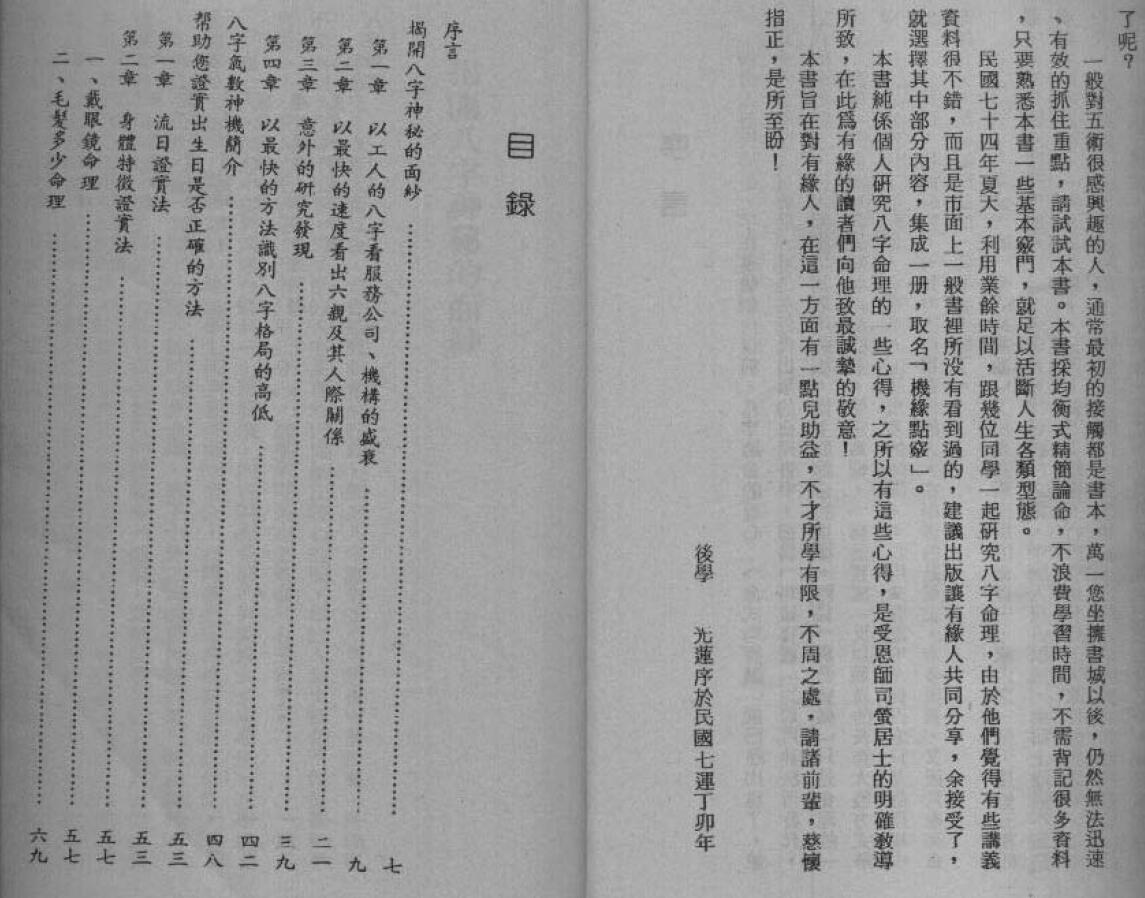 了呢？
一般對五術很感興趣的人，通常最初的接觸都是書本，萬一您坐擁書城以後，仍然無法迅速
、有效的抓住重點，請試試本書。本書採均衡式精簡論命，不浪費學習時間，不需背記很多資料
，只要熟悉本書一些基本竅門，就足以活斷人生各類型態。
民國七十四年夏天，利用業餘時間，跟幾位同學一起研究八字命理，由於他們覺得有些講義
資料很不錯，而且是市面上一般書裡所沒有看到過的，建議出版讓有緣人共同分享，余接受了，
就選擇其中部分內容，集成一册，取名「機緣點竅」。
本書純係個人研究八字命理的一些心得，之所以有這些心得，是受恩師司螢居士的明確教導
所致，在此爲有緣的讀者們向他致最誠摯的敬意！
本書旨在對有緣人，在這一方面有一點兒助益，不才所學有限，不周之處，請諸前輩，慈懷
指正，是所至盼！
後學　光蓮序於民國七運丁卯年
目錄
序言
揭開八字神秘的面紗⋯⋯七
第一章　以工人的八字看服務公司、機構的盛衰⋯⋯九
第二章　以最快的速度看出六親及其人際關係⋯⋯二一
第三章　意外的研究發現⋯⋯三九
第四章　以最快的方法識別八字格局的高低⋯⋯四二
八字氣數神機簡介⋯⋯四八
帮助您證實出生日是否正確的方法⋯⋯五三
第一章　流日證實法⋯⋯五三
第二章　身體特徵證實法⋯⋯五七
一、戴眼鏡命理⋯⋯五七
二、毛髮多少命理⋯⋯六九